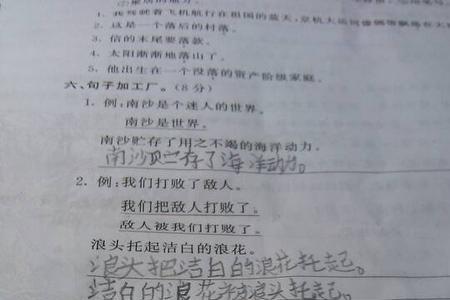 1. 我驾驶着飞机航行在祖国的蓝天,
2. 这是一个落后的村落。
3. 信的末尾要落款。
4. 太阳渐渐地落山了。
5. 他出生在一个没落的资产阶级家庭。
六、句子加工厂。(8分)
1. 例:南沙是个迷人的世界。
南沙是世界。
南沙贮存了用之不竭的海洋动力。
南沙贮存了海洋动力。
2. 例:我们打败了敌人。
我们把敌人打败了。
敌人被我们打败了。
浪头托起洁白的浪花。
浪头把洁白的浪花托起。
洁白的浪花被浪头托起。